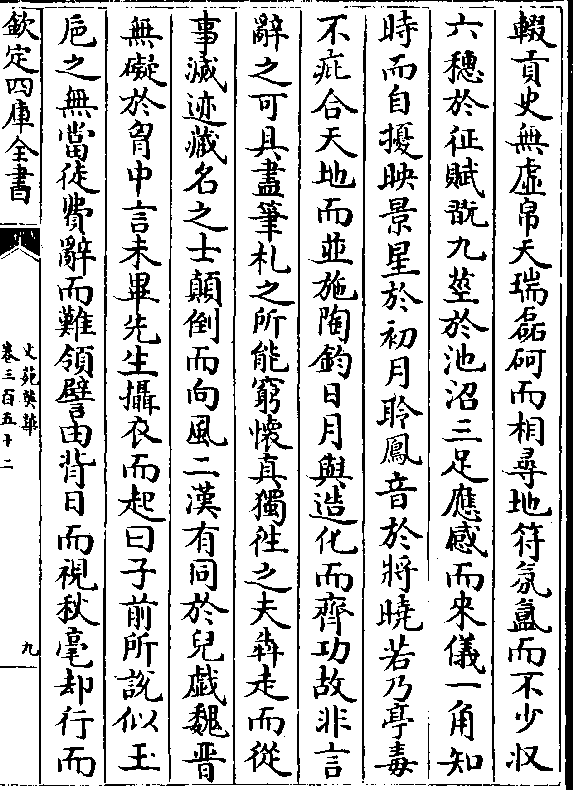 輟貢史無虛帛天瑞磊砢而相尋地符氛氲而不少収
六穗於征賦翫九莖於池沼三足應感而來儀一角知
時而自擾映景星於初月聆鳳音於將曉若乃亭毒
不疵合天地而並施陶鈞日月與造化而齊功故非言
辭之可具盡筆札之所能窮懷真獨徃之夫犇走而從
事滅迹藏名之士顛倒而向風二漢有同於兒戯魏晋
無礙於胷中言未畢先生攝衣而起曰子前所説似玉
巵之無當徒費辭而難領譬由背日而視秋毫却行而
欽定四庫全書
文苑英華
卷三百五十二
九